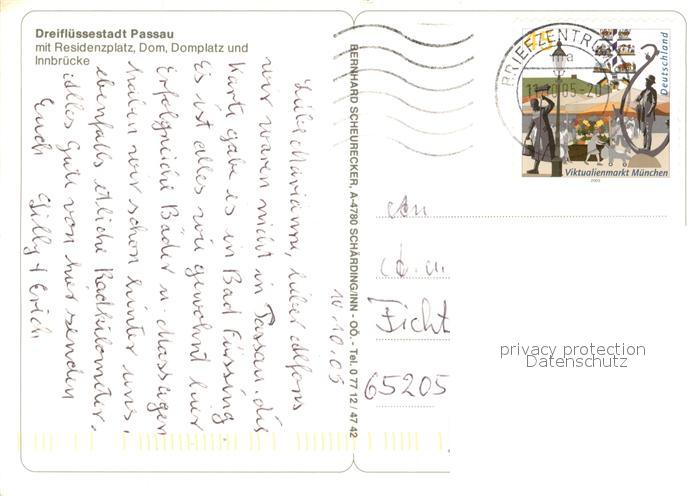 Dreiflüssestadt Passau
mit Residenzplatz, Dom, Domplatz und
Innbrücke
10.10.05
Liebe Marianne, lieber Alfons
wir waren nicht in Passau, die
Karte gabe es in Bad Füssing.
Es ist alles wie gewohnt hier
Erfolgreiche Bäder u. Massagen
haben wir schon hinter uns,
ebenfalls etliche Radkilometer.
Alles Gute von hier senden
Euch Gilly + Erich
BERNHARD SCHEURECKER, A-4780 SCHÄRDING/INN - OÖ. - Tel. 0 77 12 / 47 42
BRIEFZENTRUM
05-20
Deutschland
Viktualienmarkt München
2003
An
Ficht
65205
privacy protection
Datenschutz